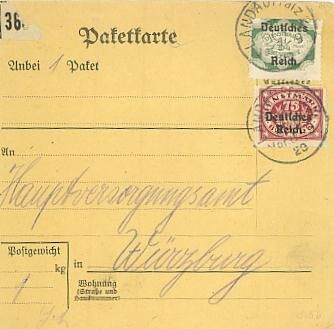 36
LANDAU (Pfalz
Deutsches
Reich
Paketkarte
Anbei 1 Paket
DIENSTMARKE
75
Deutsches
Reich
20
An
Hauptversorgungsamt
Postgewicht
1 kg
in Würzburg
Wohnung
(Straße und
Hausnummer)